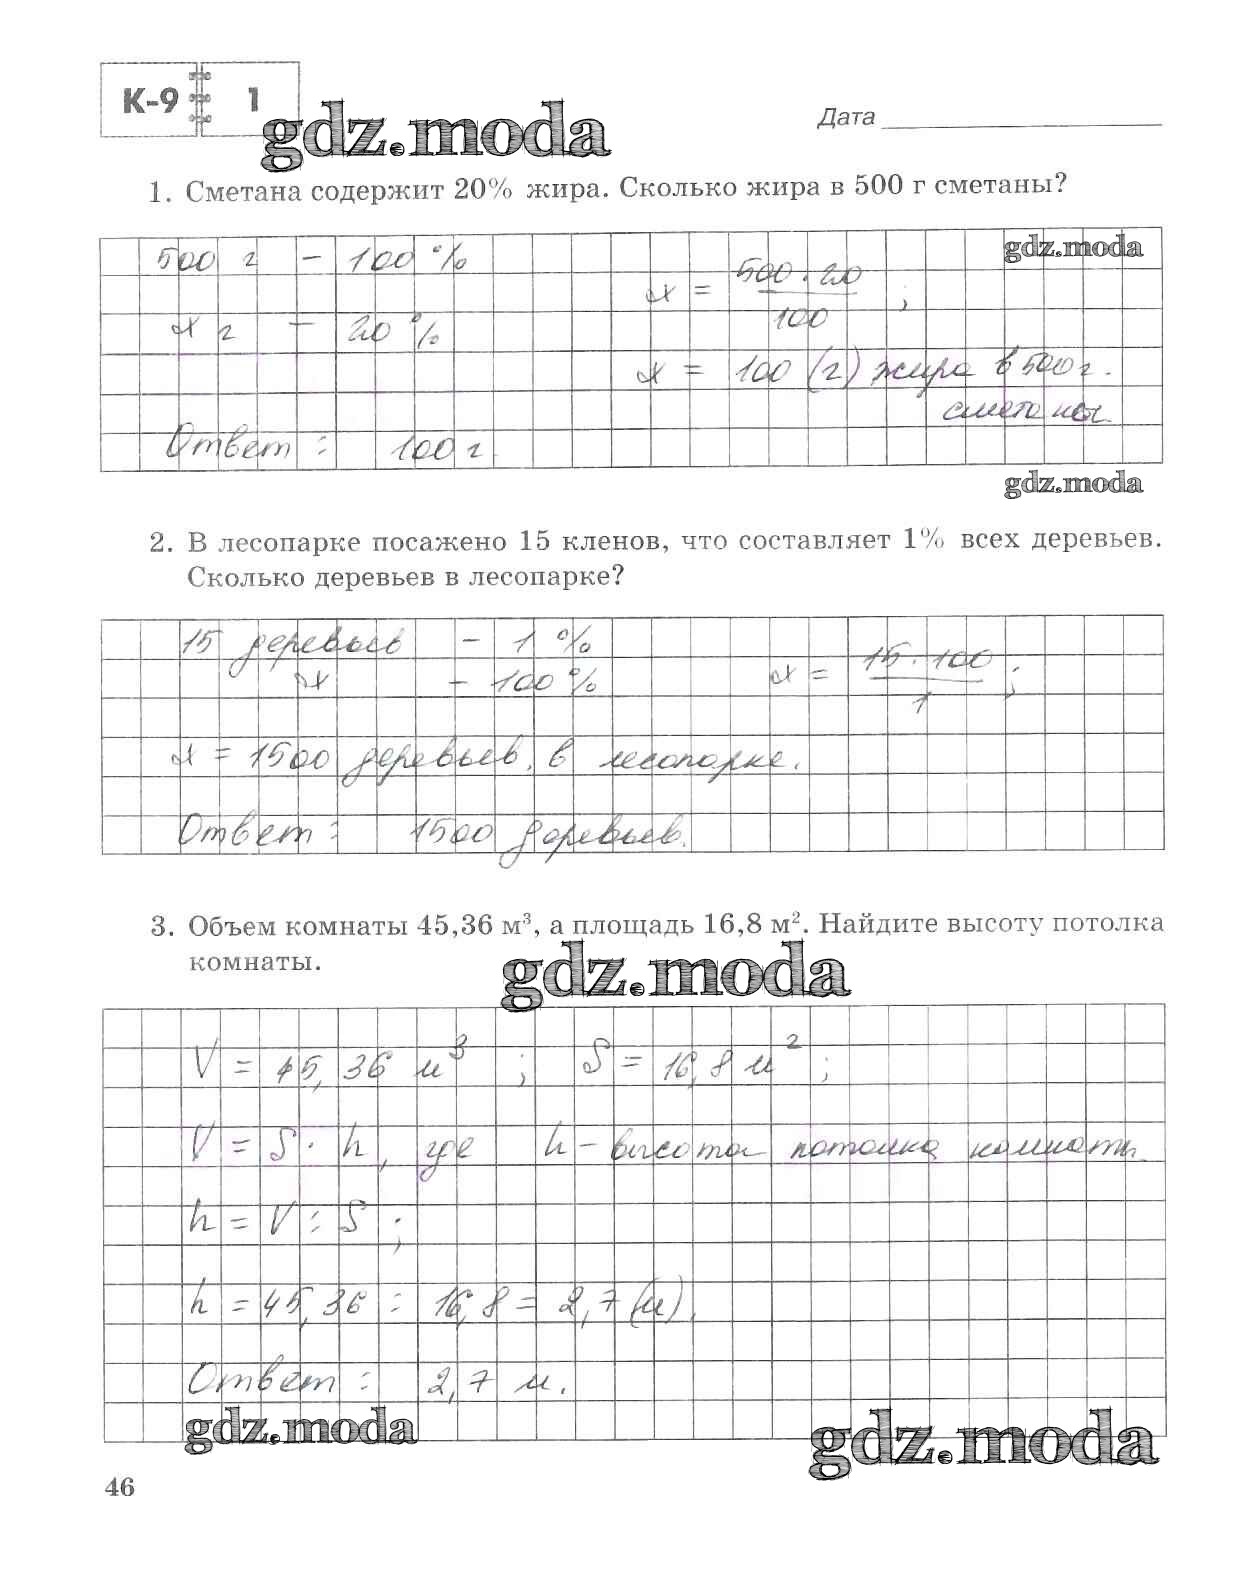 К-9 1
gdz.moda
Дата
1. Сметана содержит 20% жира. Сколько жира в 500 г сметаны?
500 г - 100 %
gdz.moda
x = 500 · 20 / 100 ;
x г - 20 %
x = 100 (г) жира в 500 г.
сметаны.
Ответ : 100 г.
gdz.moda
2. В лесопарке посажено 15 кленов, что составляет 1% всех деревьев.
Сколько деревьев в лесопарке?
15 деревьев - 1 %
x - 100 %
x = 15 · 100 / 1 ;
x = 1500 деревьев в лесопарке.
Ответ : 1500 деревьев.
3. Объем комнаты 45,36 м³, а площадь 16,8 м². Найдите высоту потолка
комнаты.
gdz.moda
V = 45,36 м³ ; S = 16,8 м² ;
V = S · h, где h - высота потолка комнаты.
h = V : S ;
h = 45,36 : 16,8 = 2,7 (м).
Ответ : 2,7 м.
gdz.moda
gdz.moda
46